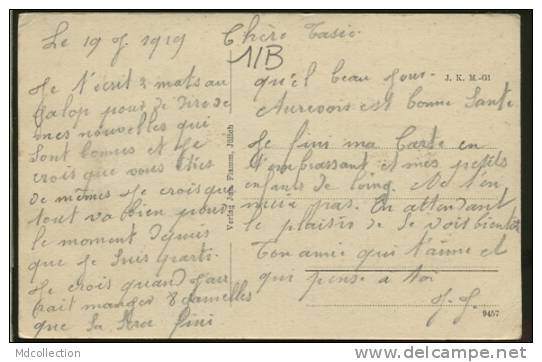 Le 19 J. 1919 Chère Tasie
11B
Je t'écrit 2 mots au
galop pour de dire de
mes nouvelles qui
sont bonnes et Je
crois que vous êtes
de mêmes Je crois que
tout va bien pour
le moment depuis
que Je suis parti
Je crois quand J'aur
rait manger 8 gamelles
que sa sera fini
qu'el beau Jour.
Aurevoir est bonne Santé
Je fini ma Carte en
t'embrassant et mes petits
enfants de loing. Ne t'en
nuie pas. En attendant
le plaisir de se voir bientot
Ton amie qui t'aime et
qui pense a toi
J. J.
Verlag Jos. Flamm, Jülich
J. K. M.-Gl
9457
MDCollection
www.delcampe.net